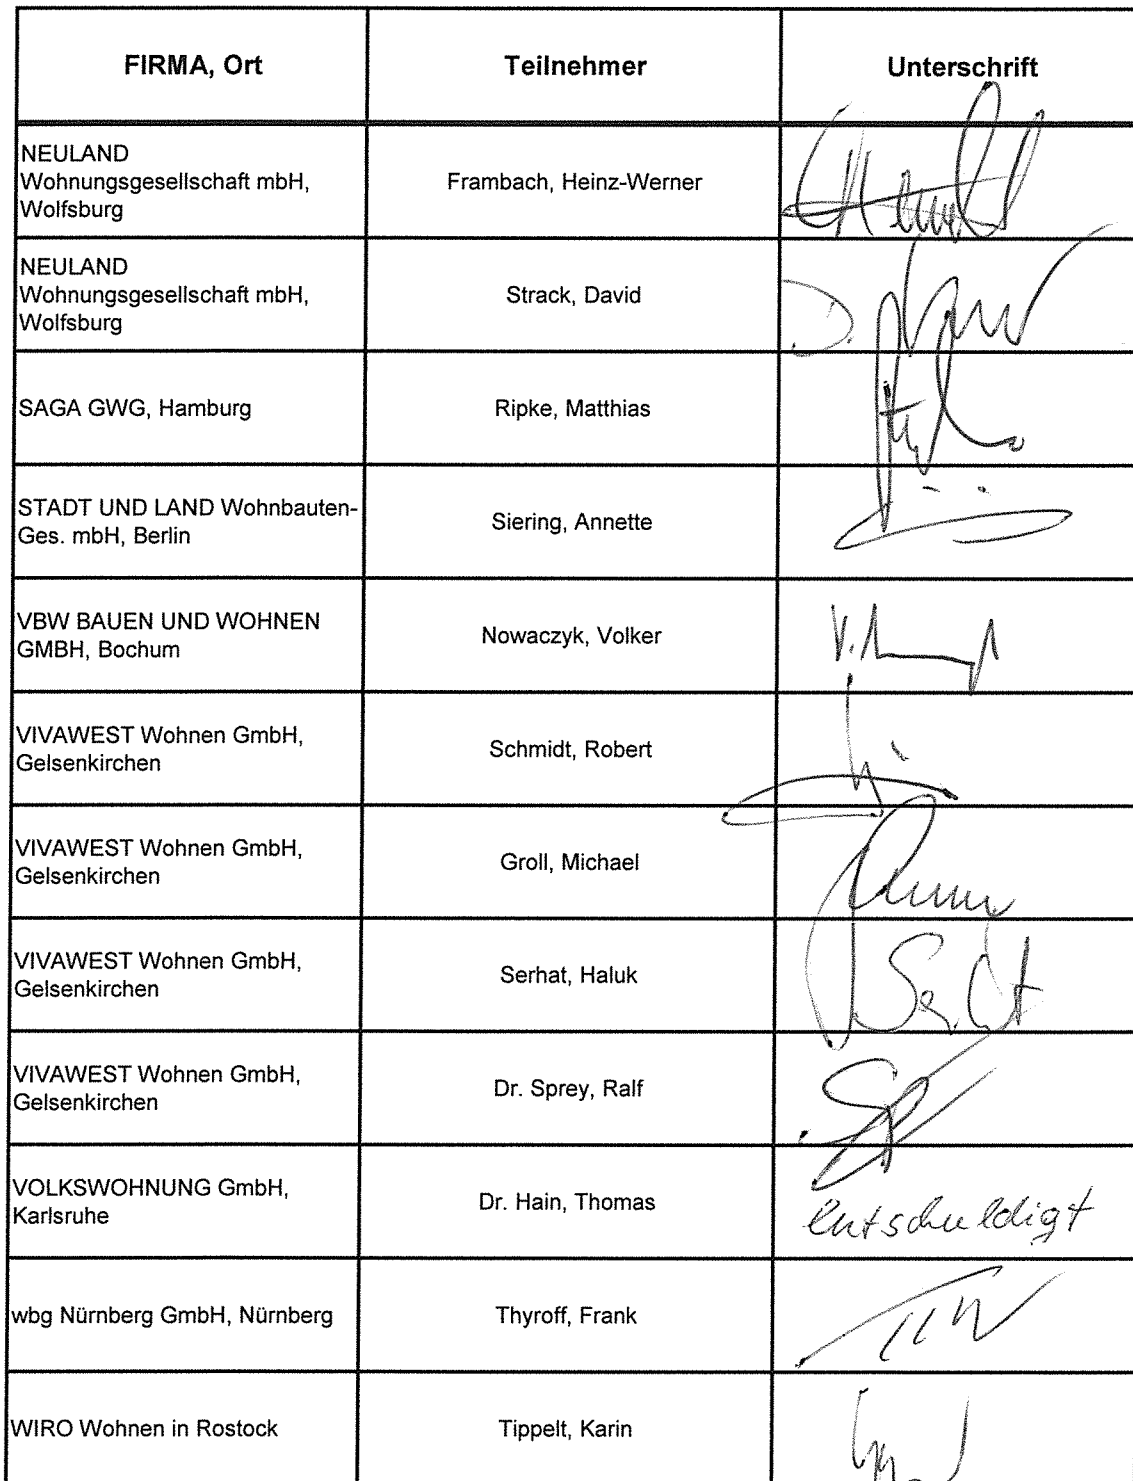 FIRMA, Ort
Teilnehmer
Unterschrift
NEULAND
Wohnungsgesellschaft mbH,
Wolfsburg
Frambach, Heinz-Werner
NEULAND
Wohnungsgesellschaft mbH,
Wolfsburg
Strack, David
SAGA GWG, Hamburg
Ripke, Matthias
STADT UND LAND Wohnbauten-
Ges. mbH, Berlin
Siering, Annette
VBW BAUEN UND WOHNEN
GMBH, Bochum
Nowaczyk, Volker
VIVAWEST Wohnen GmbH,
Gelsenkirchen
Schmidt, Robert
VIVAWEST Wohnen GmbH,
Gelsenkirchen
Groll, Michael
VIVAWEST Wohnen GmbH,
Gelsenkirchen
Serhat, Haluk
VIVAWEST Wohnen GmbH,
Gelsenkirchen
Dr. Sprey, Ralf
VOLKSWOHNUNG GmbH,
Karlsruhe
Dr. Hain, Thomas
entschuldigt
wbg Nürnberg GmbH, Nürnberg
Thyroff, Frank
WIRO Wohnen in Rostock
Tippelt, Karin